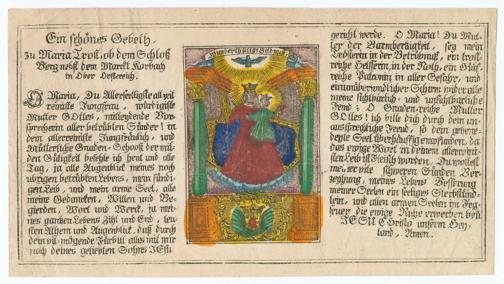 Ein schönes Gebeth.
zu Maria Trost, ob dem Schloß
Berg nebst dem Marckt Rorbach
in Ober Oestereich.
O Maria, Du Allerseeligste all zeit
reineste Jungfrau, würdigiste
Mutter GOttes, mitleydende Vor-
sprecherin aller betrübten Sünder! in
dein allerreineste Jungfräulich, und
Mütterliche Gnaden-Schooß der mil-
den Gütigkeit befehle ich heut und alle
Tag, ja alle Augenblick meines noch
übrigen betrübten Lebens, mein sündi-
gen Leib, und mein arme Seel, alle
meine Gedancken, Willen und Be-
gierden, Wort und Werck, ja mei-
nes gantzen Lebens Zihl und End, leu-
sten Athem und Augenblick, daß durch
dein vil-mögende Fürbitt alles mit mir
nach deines geliebten Sohns JEsu
gericht werde. O Maria! Du Mut-
ter der Barmhertzigkeit, sey mein
Trösterin in der Betrübnuß, ein trost-
reiche Helfferin in der Noth, ein
reiche Patronin in aller Gefahr, und
ein unüberwindlicher Schirm wider alle
meine sichtbarlich- und unsichtbarliche
Feind; O Gnaden-reiche Mutter
GOttes! ich bitte dich durch dein un-
aussprechliche Freud, so dein gebene-
deyte Seel überhäuffig empfanden, da
das ewige Wort in deinem allerreini-
sten Leib ist Fleisch worden, Du wollest
meiner vile schweren Sünden Ver-
zeyhung, meines Lebens Besserung
meiner Seelen ein seeliges Sterbstünd-
lein, und allen armen Seelen im Feg-
feuer die ewige Ruhe erwerben durch
JESUM Christum unseren Hey-
land, Amen.